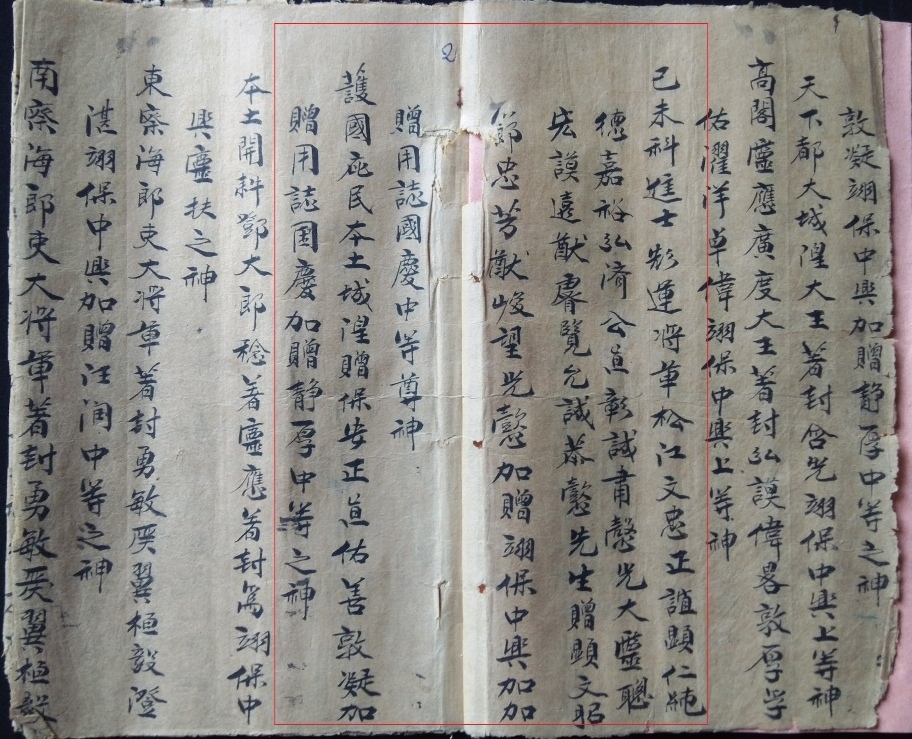 敦凝翊保中興加贈静厚中等之神
天下都大城隍大王著封含光翊保中興上等神
高閣靈應廣度大王著封弘謨偉畧敦厚孚
佑濯洋卓偉翊保中興上等神
己未科進士 運将軍松江文忠正誼顯仁純
德嘉裕弘濟公直彰誠肅慤光大靈聰
宏謨遠猷睿覽允誠恭慤先生贈顯文昭
節忠芳猷峻望光慤加贈翊保中興加加
2
贈用誌國慶中等尊神
護國庇民本土城隍贈保安正直佑善敦凝加
贈用誌國慶加贈静厚中等之神
本土開耕鄧大郎稔著靈應著封為翊保中
興靈扶之神
東寨海郎吏大将軍著封勇敏 翼桓毅澄
湛翊保中興加贈汪潤中等之神
南寨海郎吏大将軍著封勇敏 翼桓毅